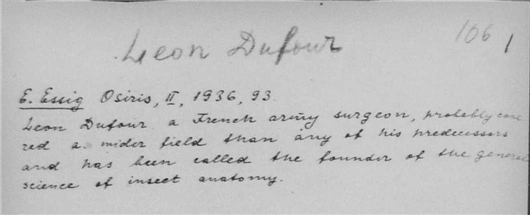 Leon Dufour
106 1
E. Essig Osiris, II, 1936, 93.
Leon Dufour a French army surgeon, probably cove
red a wider field than any of his predecessors
and has been called the founder of the general
science of insect anatomy.